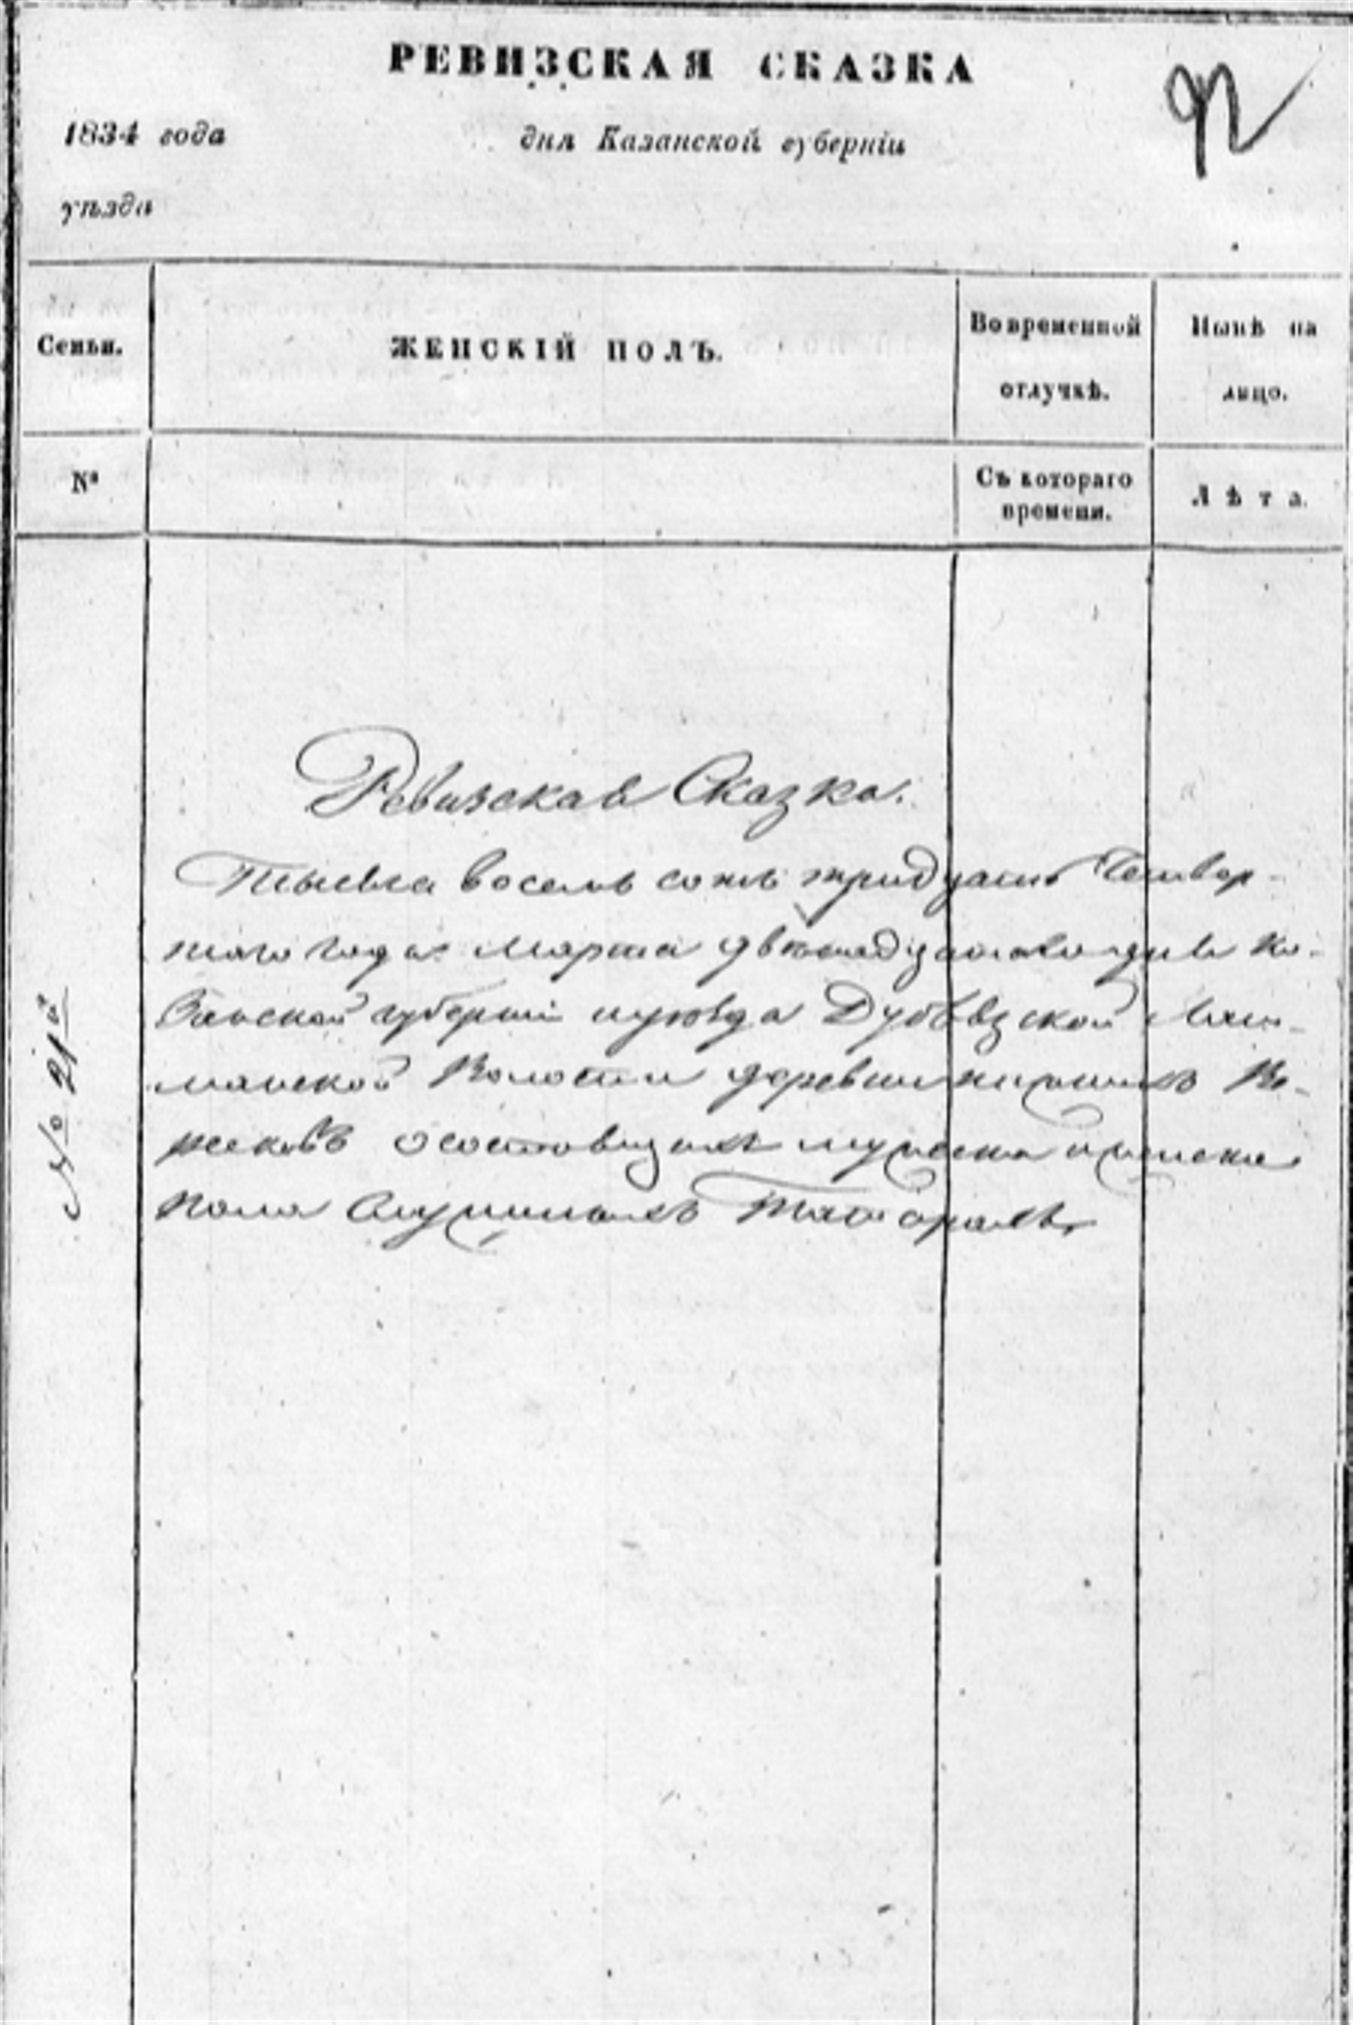 РЕВИЗСКАЯ СКАЗКА
92
1834 года дня Казанской губерніи
уѣзда
Семьи.
ЖЕНСКІЙ ПОЛЪ.
Во временной
отлучкѣ.
Нынѣ на
лицо.
№
Съ котораго
времени.
Лѣта.
Ревизская Сказка.
Тысеча восемь сотъ тридцать Четвер-
таго года Марта двенадцатаго дня Ка-
занской губерніи уезда Лаш-
манской Волости деревни
о состоящихъ мужеска и женска
пола Служилыхъ Татарахъ
№ 21й